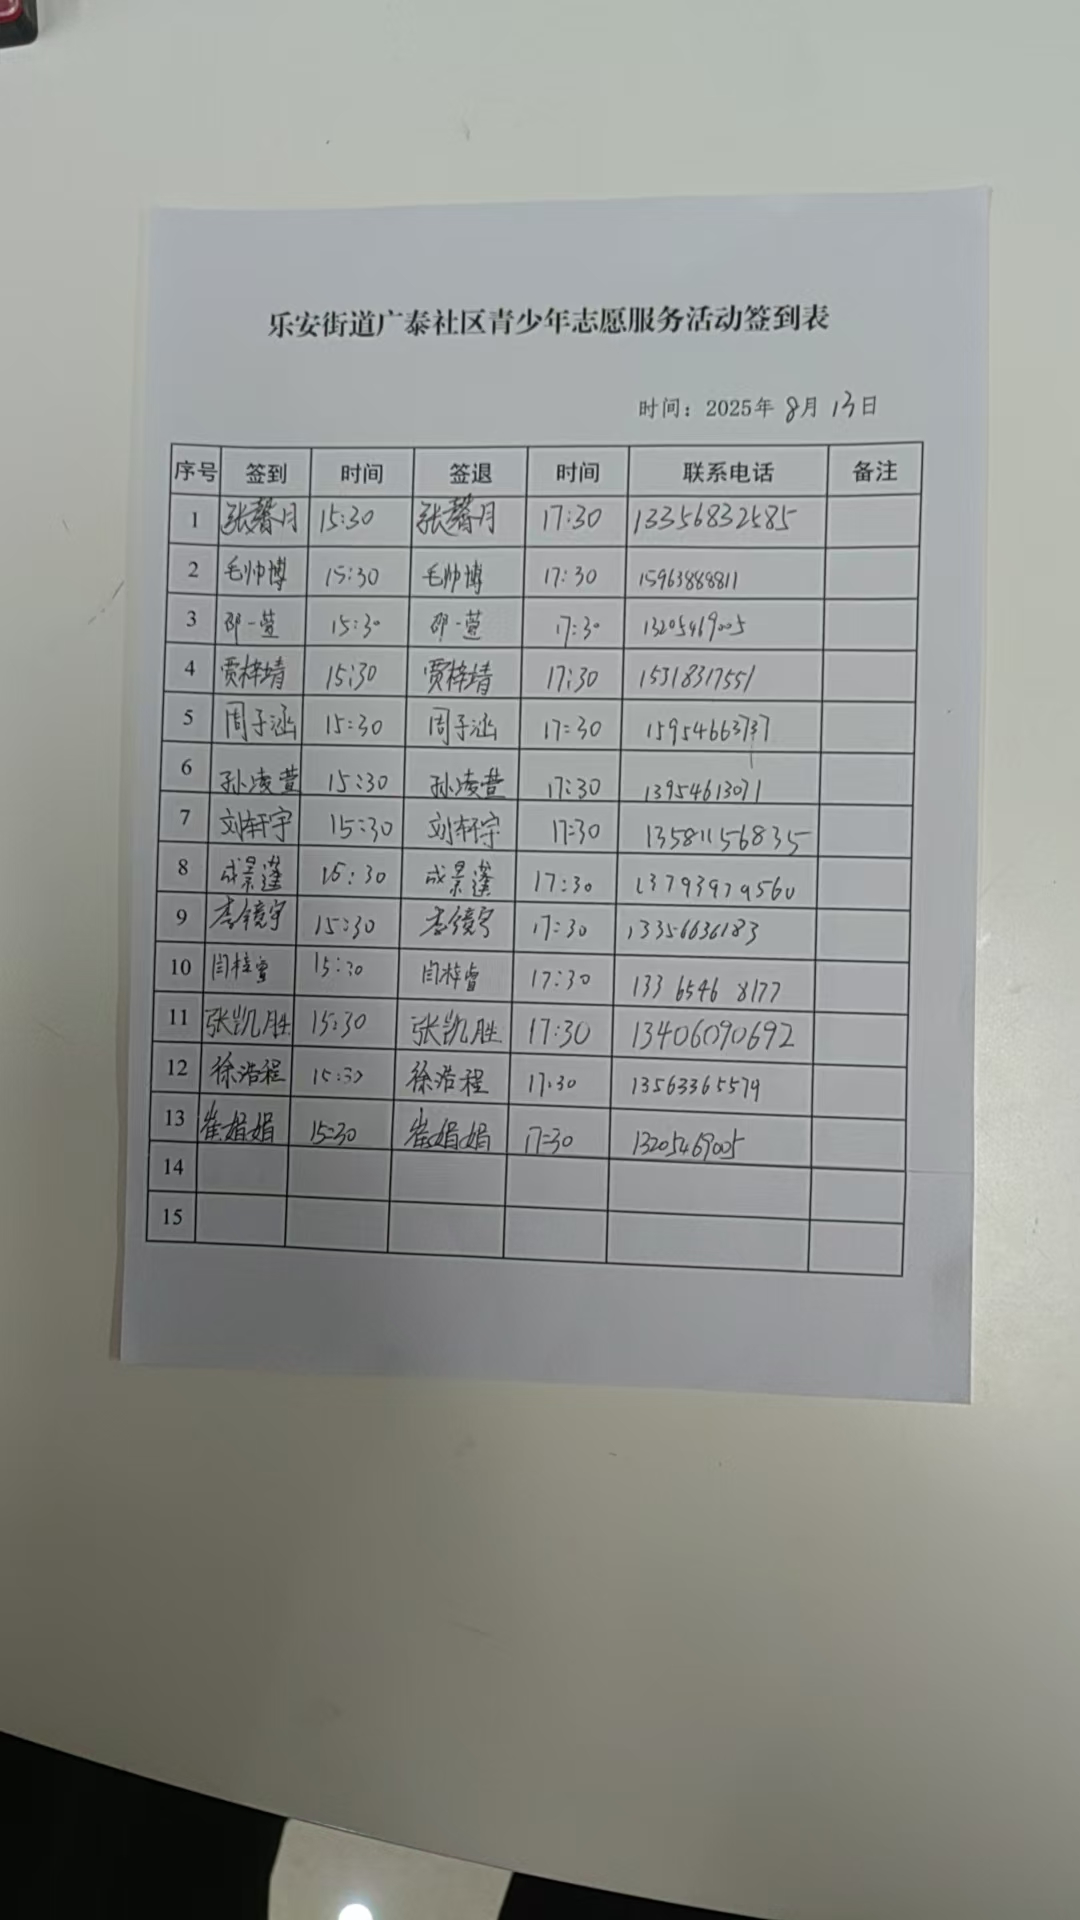 乐安街道广泰社区青少年志愿服务活动签到表
时间：2025年 8月 13日
序号 签到 时间 签退 时间 联系电话 备注
1 张馨月 15:30 张馨月 17:30 13356832585
2 毛帅博 15:30 毛帅博 17:30 15963888811
3 邵一萱 15:30 邵一萱 17:30 13205469005
4 贾梓靖 15:30 贾梓靖 17:30 15318317551
5 周子涵 15:30 周子涵 17:30 15954663737
6 孙凌萱 15:30 孙凌萱 17:30 13954613071
7 刘轩宇 15:30 刘轩宇 17:30 13581156835
8 成景蓬 15:30 成景蓬 17:30 13793979560
9 李镜宇 15:30 李镜宇 17:30 13356636183
10 闫梓睿 15:30 闫梓睿 17:30 133 6546 8177
11 张凯胜 15:30 张凯胜 17:30 13406090692
12 徐浩程 15:30 徐浩程 17:30 13563365579
13 崔娟娟 15:30 崔娟娟 17:30 13205469005
14
15